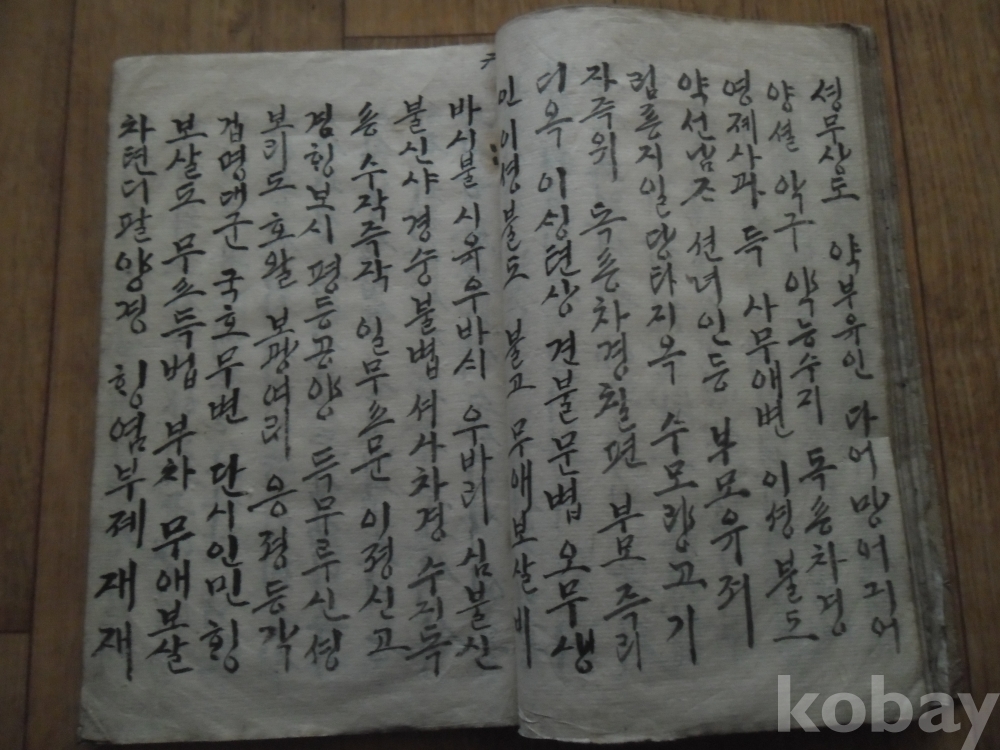 셩무상도 약부유인 다어망어긔어
양셜 악구 약능수지 독숑차경
영졔사과 득 사무애변 이셩불도
약션남즈 션녀인등 부모유죄
림죵지일 당타지옥 수모량고기
자주위 독숑차경칠편 부모 즉리
디옥 이싱텬상 견불문법 오무생
인 이셩불도 불고 무애보살비
바시불 시유우바시 우바리 심불신
불신샤 경숭불법 셔사차경 수지독
숑 수작즉작 일무쇼문 이졍신고
겸힝보시 평등공양 득무루신 셩
보리도 호왈 보광여래 응졍등각
겁명대군 국호무변 단시인민 힝
보살도 무쇼득법 부차 무애보살
차텬디팔양경 힝염부졔 재재
kobay